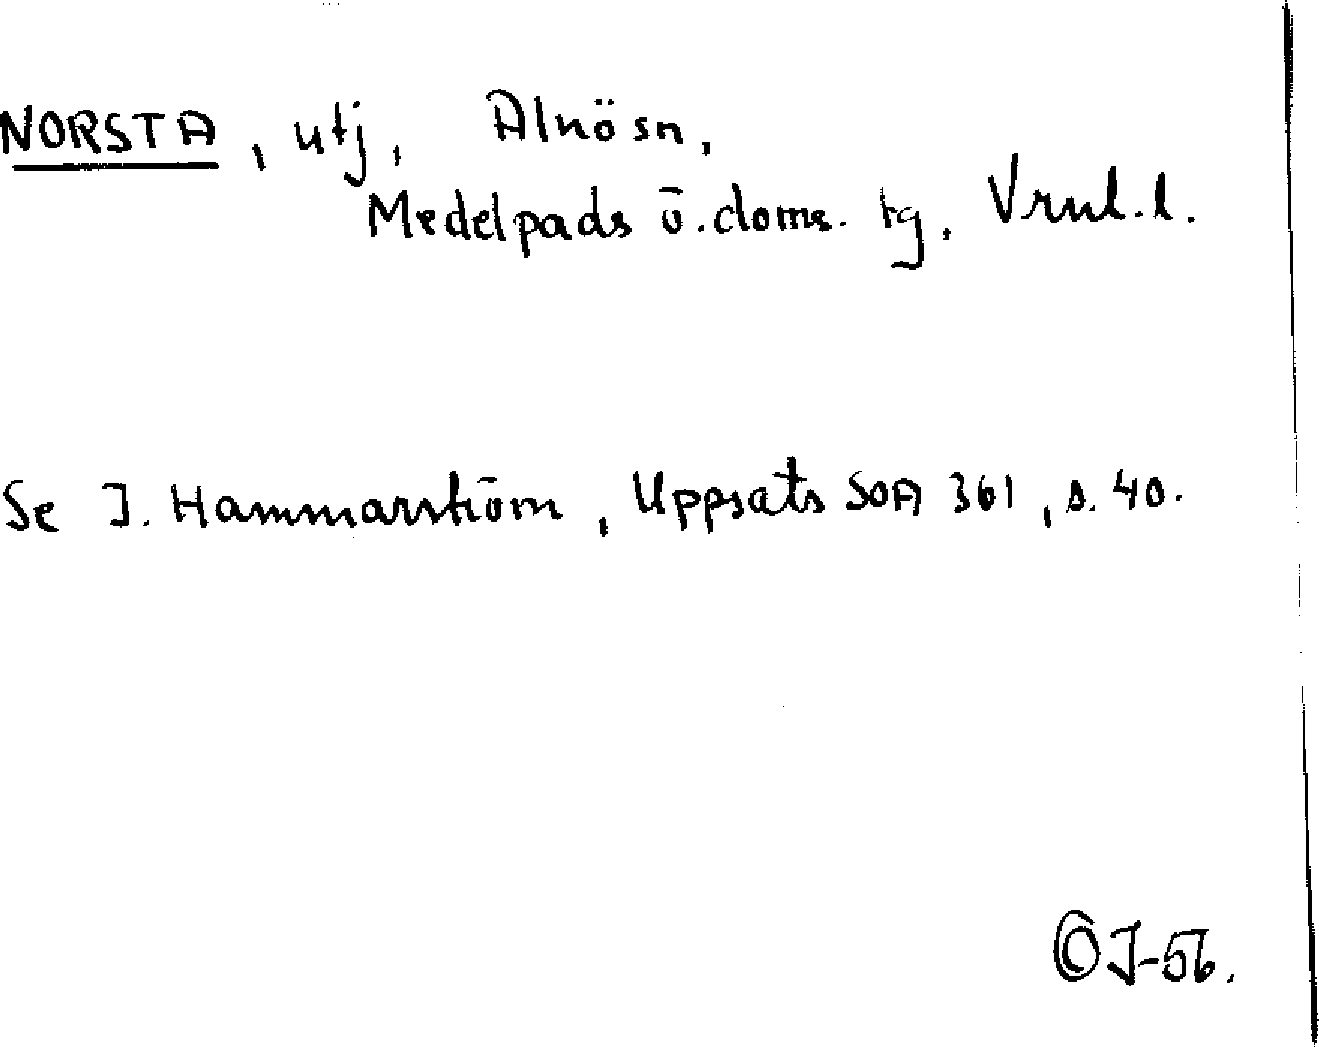 NORSTA, utj, Alnösn,
Medelpads ö.doms. tg, Vrnl.l.
Se J. Hammarström, Uppsats SOA 361, s. 40.
© J-56.